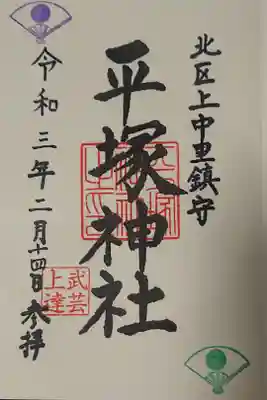 北区上中里鎮守
平塚神社
令和三年二月十四日参拝
武芸
上達